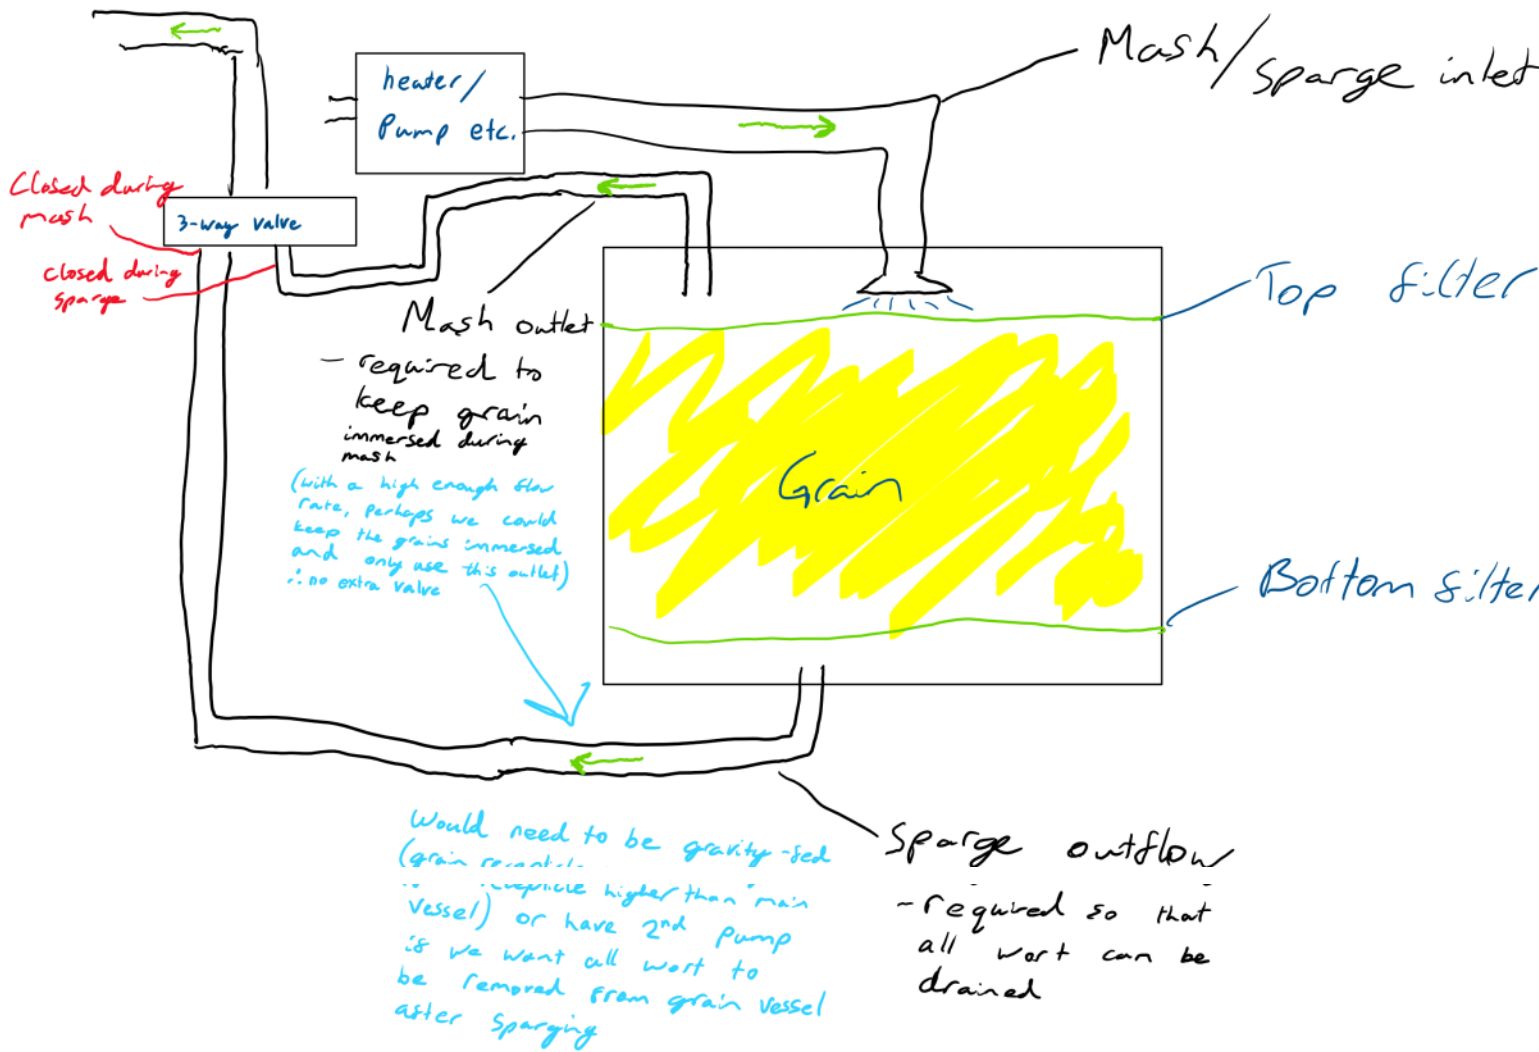 heater/
Pump etc.
Mash/
sparge inlet
Closed during
mash
3-way valve
closed during
sparge
Mash outlet
- required to
keep grain
immersed during
mash
(with a high enough flow
rate, perhaps we could
keep the grains immersed
and only use this outlet)
∴ no extra valve
Top filter
Grain
Bottom filter
Would need to be gravity-fed
(grain
higher than main
vessel) or have 2nd pump
if we want all wort to
be removed from grain vessel
after sparging
Sparge outflow
- required so that
all wort can be
drained